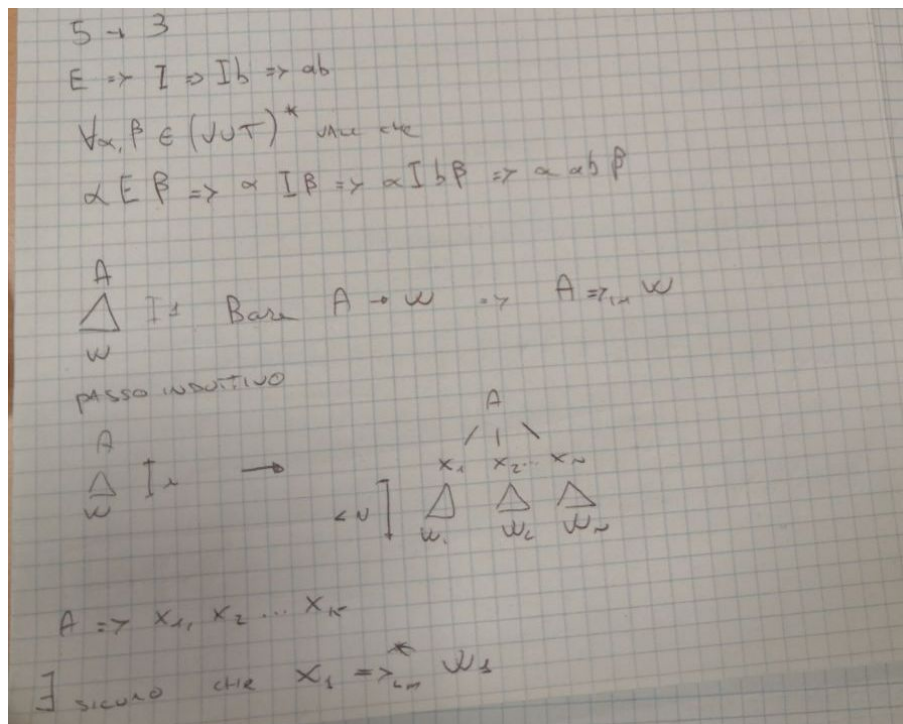 5 → 3
E => I => Ib => ab
∀α, β ∈ (VUT)* VALE CHE
α E β => α I β => α I b β => α ab β
A
w
I1 Base A → w => A =>lm w
PASSO INDUTTIVO
A
w
A
x1 x2 ... xn
< N
w1 w2 wn
A => x1, x2 ... xk
∃ SICURO CHE x1 =>*lm w1